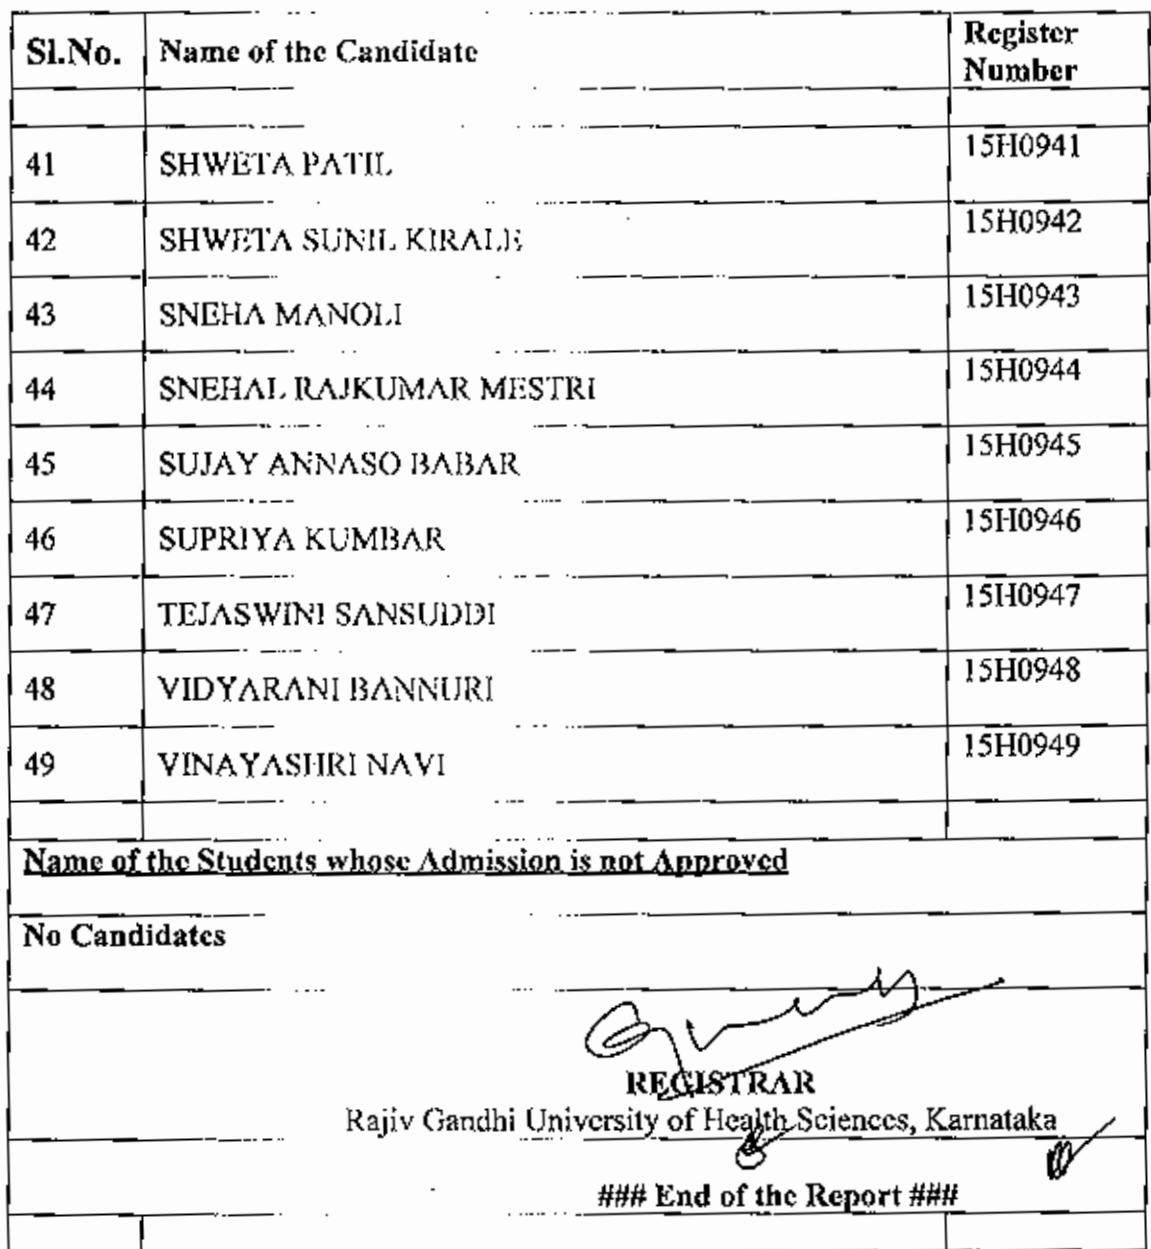 Sl.No. Name of the Candidate Register Number
41 SHWETA PATIL 15H0941
42 SHWETA SUNIL KIRALE 15H0942
43 SNEHA MANOLI 15H0943
44 SNEHAL RAJKUMAR MESTRI 15H0944
45 SUJAY ANNASO BABAR 15H0945
46 SUPRIYA KUMBAR 15H0946
47 TEJASWINI SANSUDDI 15H0947
48 VIDYARANI BANNURI 15H0948
49 VINAYASHRI NAVI 15H0949
Name of the Students whose Admission is not Approved
No Candidates
REGISTRAR
Rajiv Gandhi University of Health Sciences, Karnataka
### End of the Report ###